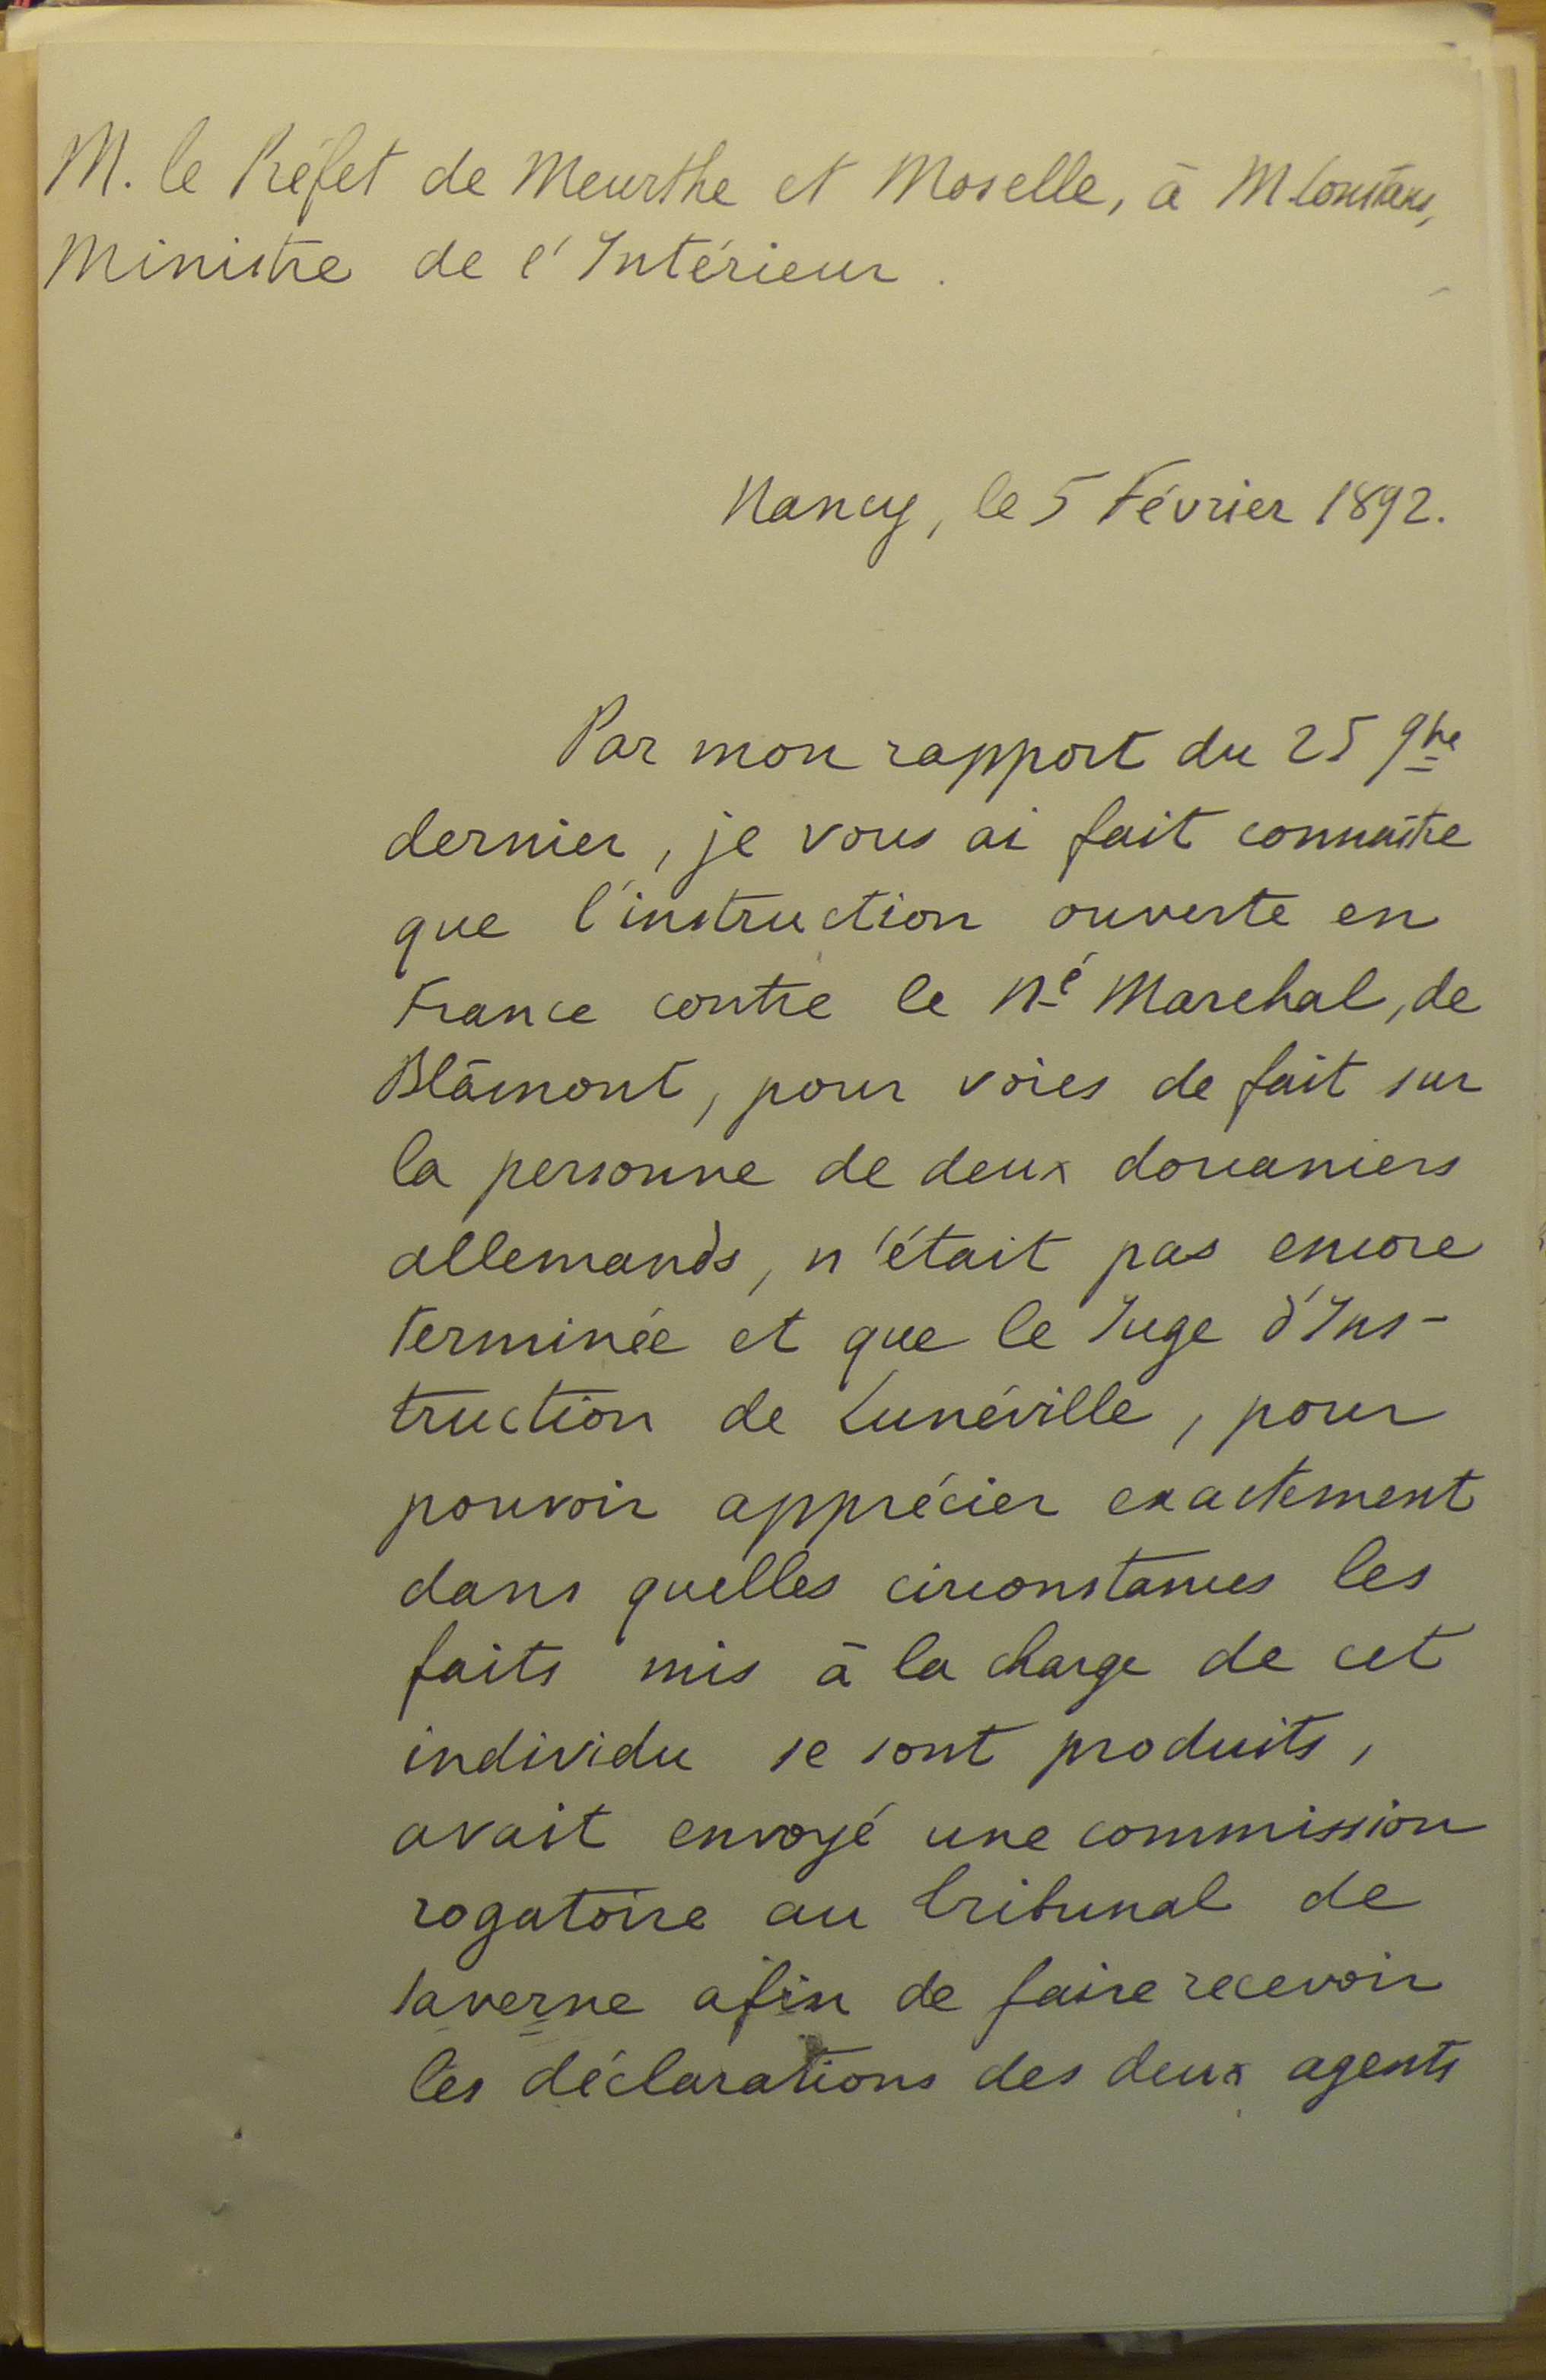 M. le Préfet de Meurthe et Moselle, à M Constans,
Ministre de l'Intérieur.
Nancy, le 5 Février 1892.
Par mon rapport du 25 9bre
dernier, je vous ai fait connaître
que l'instruction ouverte en
France contre le né Marchal, de
Blâmont, pour voies de fait sur
la personne de deux douaniers
allemands, n'était pas encore
terminée et que le Juge d'Ins-
truction de Lunéville, pour
pouvoir apprécier exactement
dans quelles circonstances les
faits mis à la charge de cet
individu se sont produits,
avait envoyé une commission
rogatoire au tribunal de
Saverne afin de faire recevoir
les déclarations des deux agents